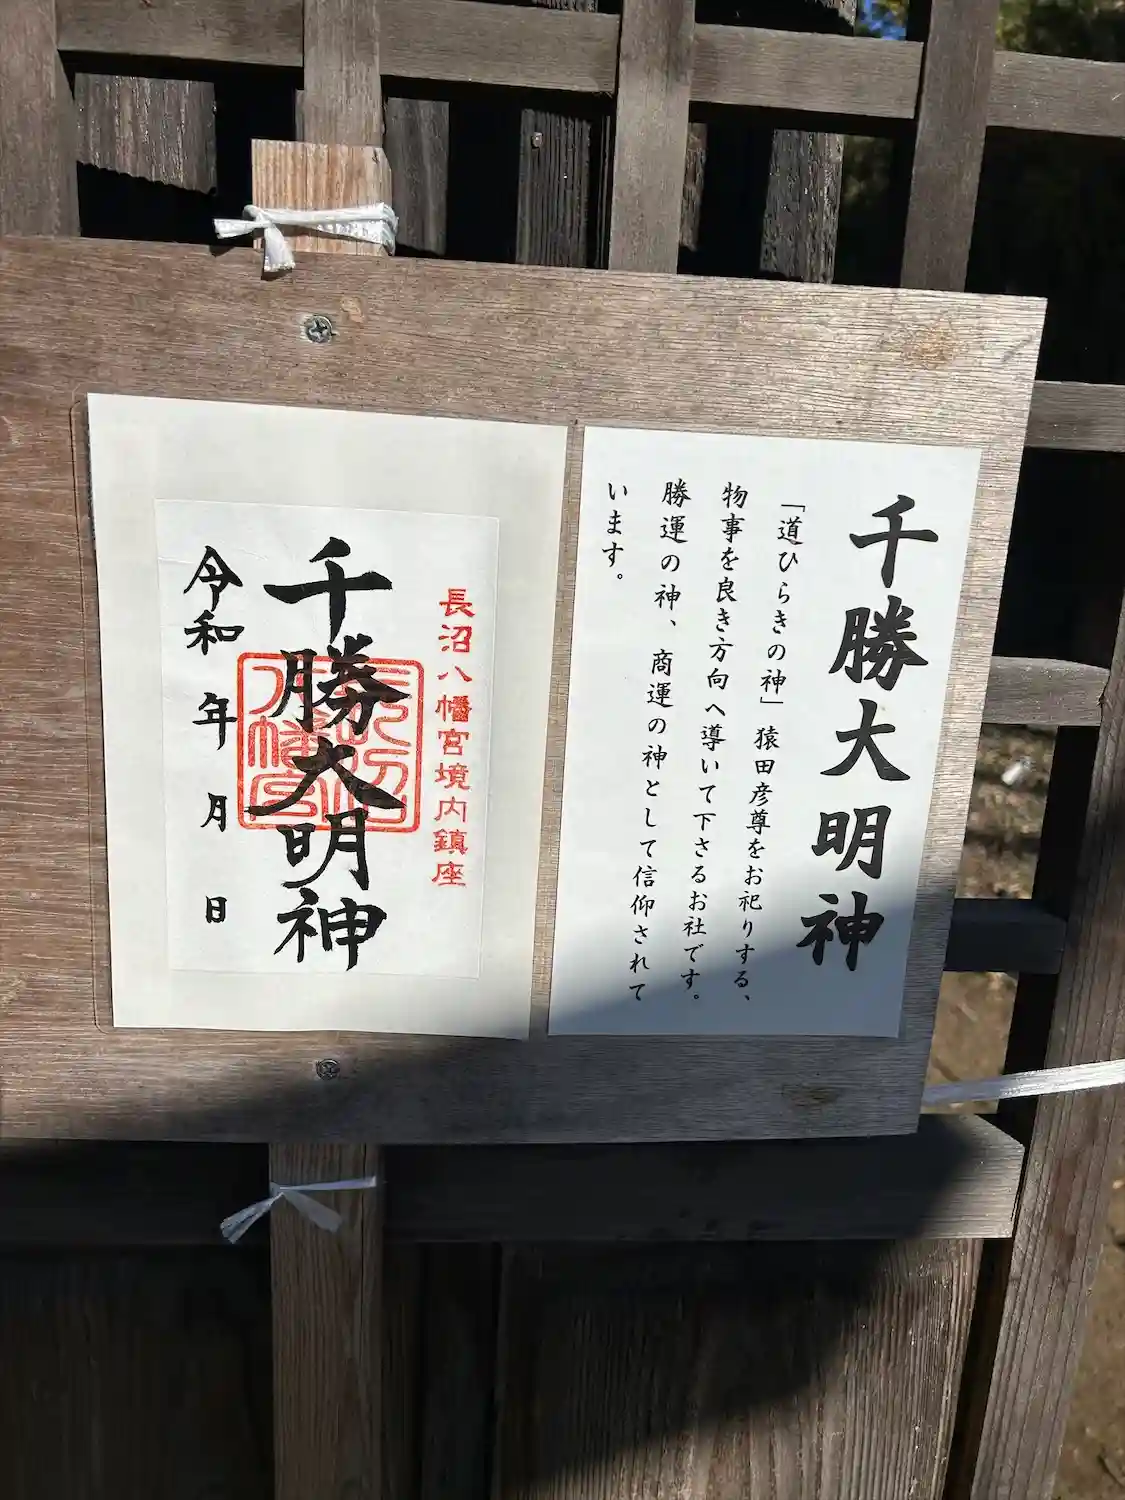 千勝大明神
「道ひらきの神」猿田彦尊をお祀りする、
物事を良き方向へ導いて下さるお社です。
勝運の神、商運の神として信仰されて
います。
長沼八幡宮境内鎮座
千勝大明神
長沼八幡宮
令和 年 月 日